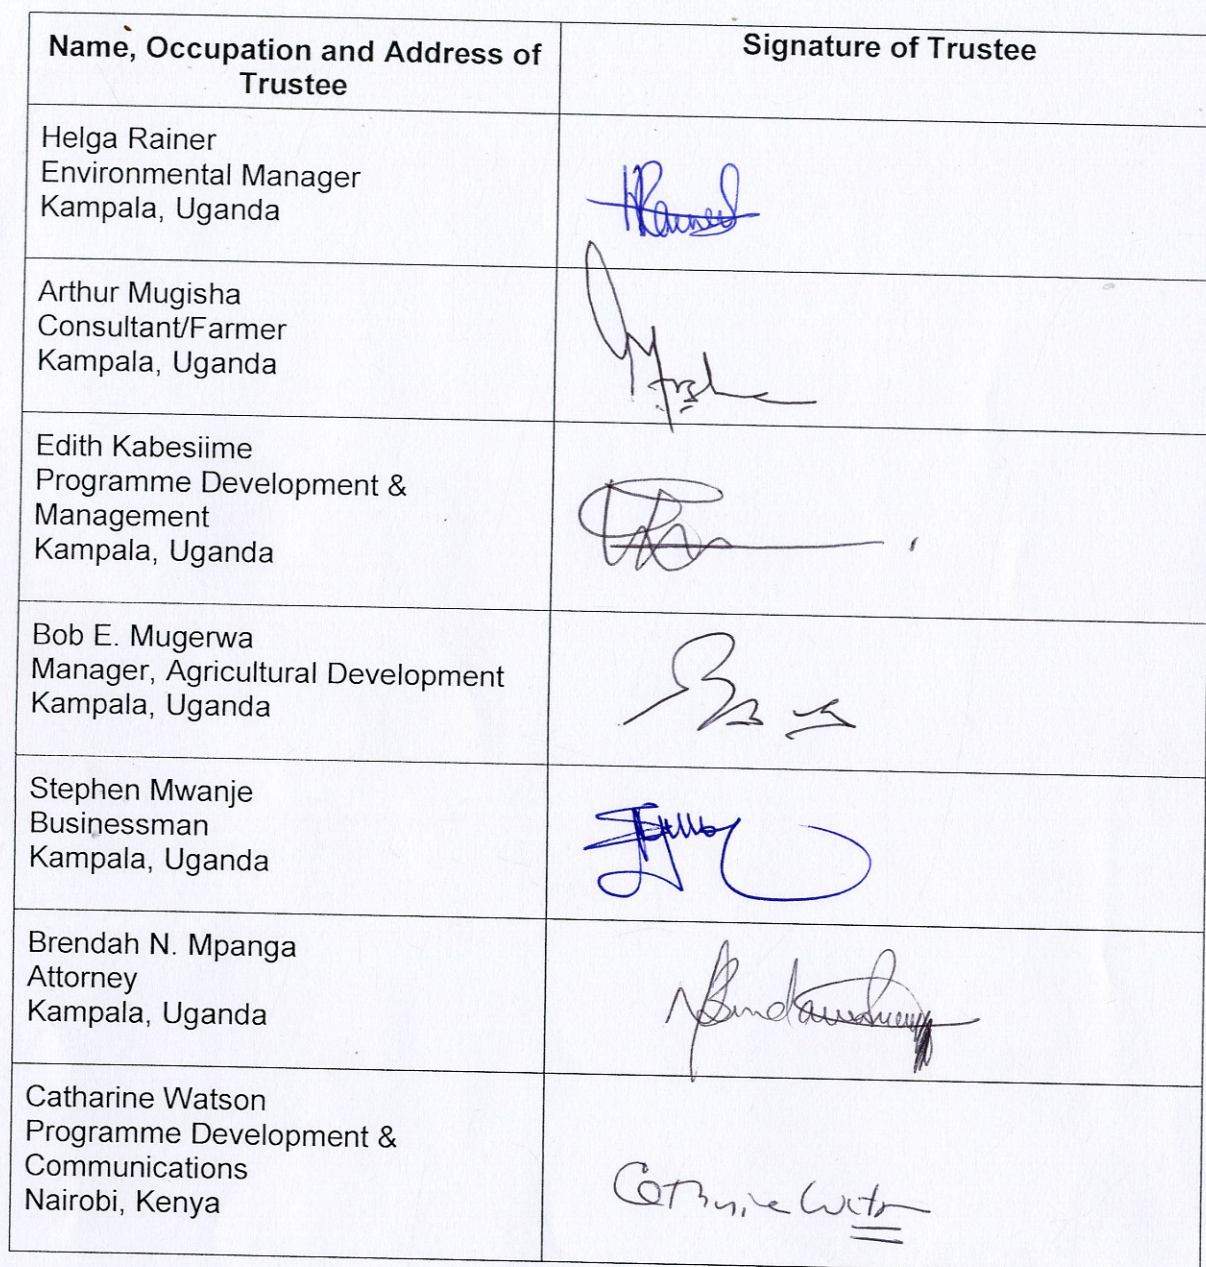 Name, Occupation and Address of
Trustee
Signature of Trustee
Helga Rainer
Environmental Manager
Kampala, Uganda
Arthur Mugisha
Consultant/Farmer
Kampala, Uganda
Edith Kabesiime
Programme Development &
Management
Kampala, Uganda
Bob E. Mugerwa
Manager, Agricultural Development
Kampala, Uganda
Stephen Mwanje
Businessman
Kampala, Uganda
Brendah N. Mpanga
Attorney
Kampala, Uganda
Catharine Watson
Programme Development &
Communications
Nairobi, Kenya